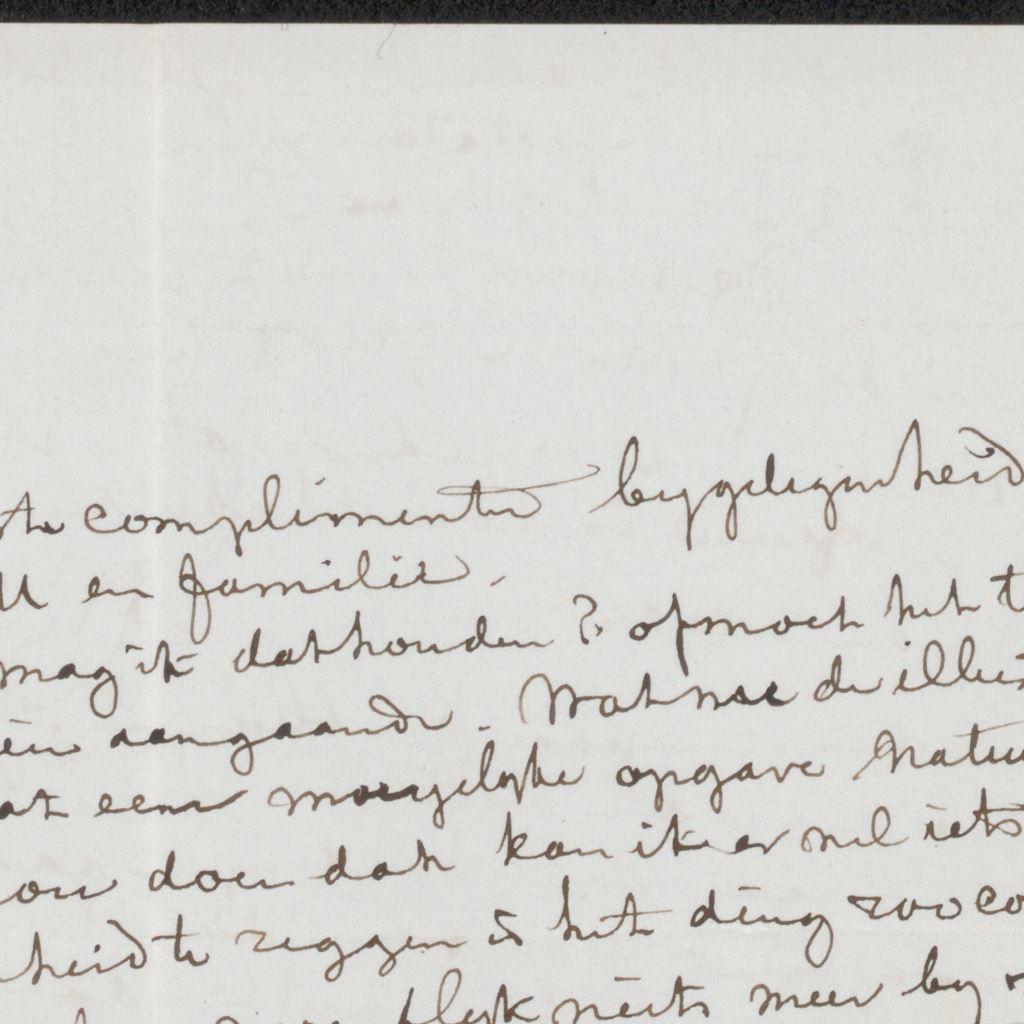 complimenten by gelegenheid
U en familie.
mag ik dat houden? of moet het t
aangaande. Wat nu de illus
at eene moeyelyke opgave Natuu
ou doen dat kan ik er wel iets
heid te zeggen is het ding zoo co
blyk niets meer by